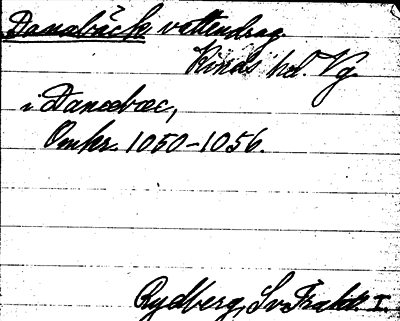 Danabäck vattendrag
Kinds hd. Vg.
i Danæbæc,
Omkr. 1050-1056.
Rydberg, Sv. Trakt. I.